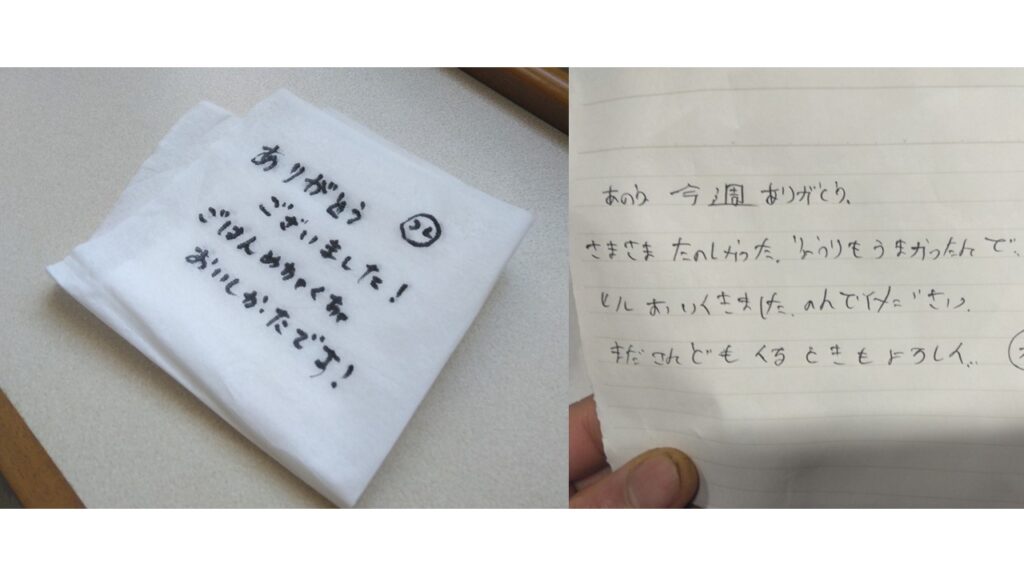 ありがとう
ございました！
ごはんめちゃくちゃ
おいしかったです！
あのう 今週 ありがとう、
さまさま たのしかった、りょうりもうまかったんで、
ビル おいくきました、のんで ださい、
まださんどもくるときもよろしく、、